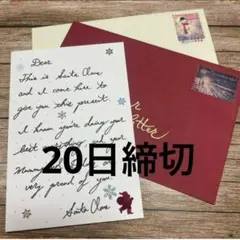 Dear
This is Santa Claus
and I come here to
give you this present.
I know you're doing your
best
your
Mummy
very proud of you.
Santa Claus
Letter
20日締切